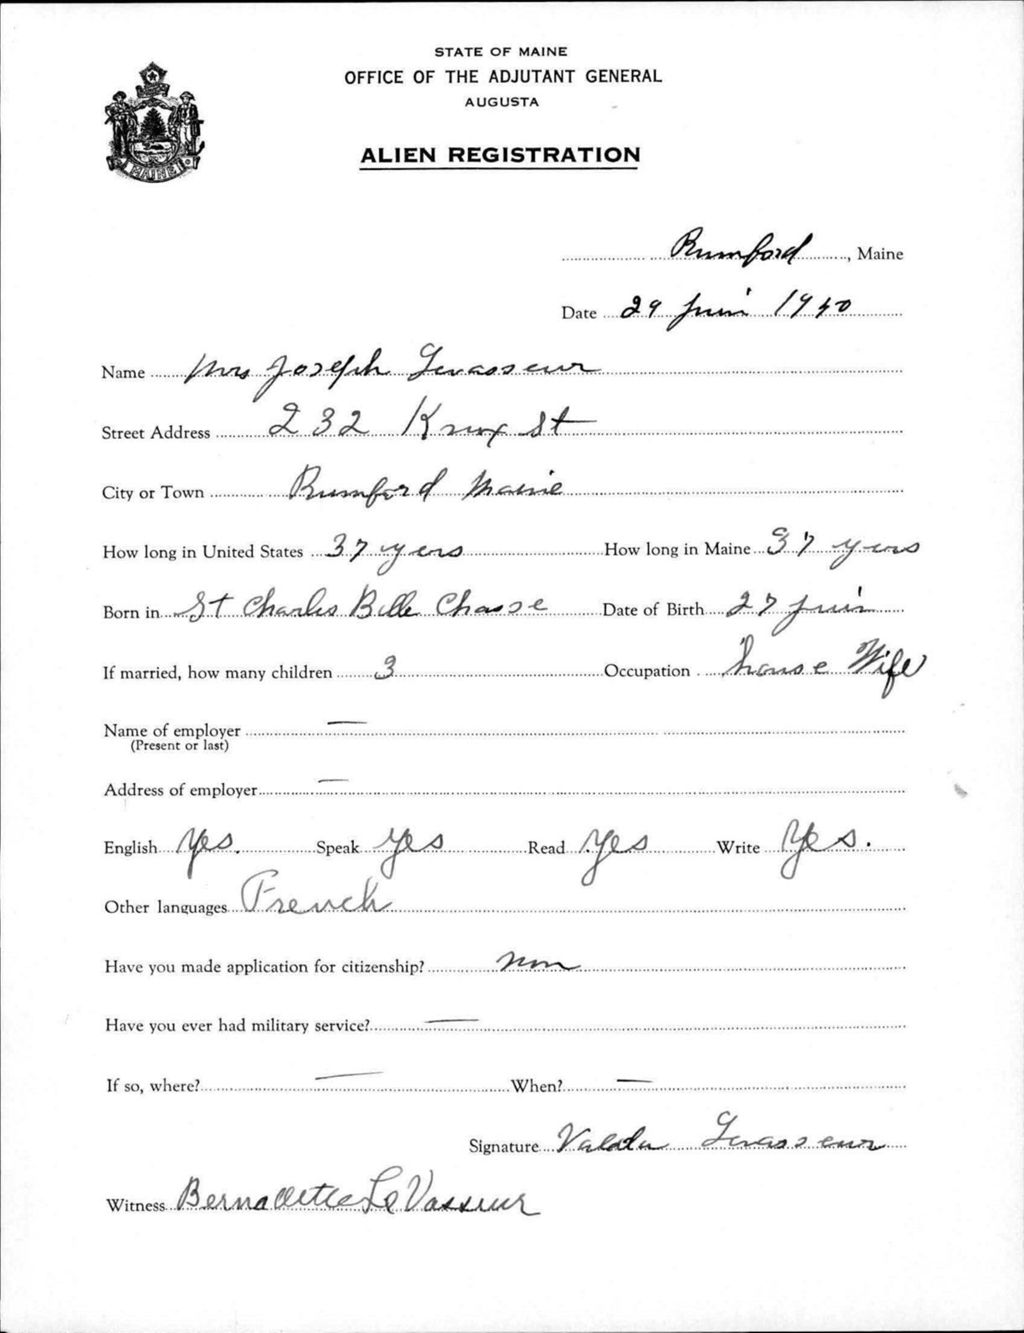 STATE OF MAINE
OFFICE OF THE ADJUTANT GENERAL
AUGUSTA
MAINE
ALIEN REGISTRATION
Rumford, Maine
Date 29 juin 1940
Name Mrs Joseph Levasseur
Street Address 232 Knox St
City or Town Rumford Maine
How long in United States 37 yers How long in Maine 37 yers
Born in St Charles Belle Chasse Date of Birth 27 juin
If married, how many children 3 Occupation house Wife
Name of employer —
(Present or last)
Address of employer —
English Yes. Speak Yes Read Yes Write Yes.
Other languages French
Have you made application for citizenship? non
Have you ever had military service? —
If so, where? — When? —
Signature Valeda Levasseur
Witness Bernadette LeVasseur